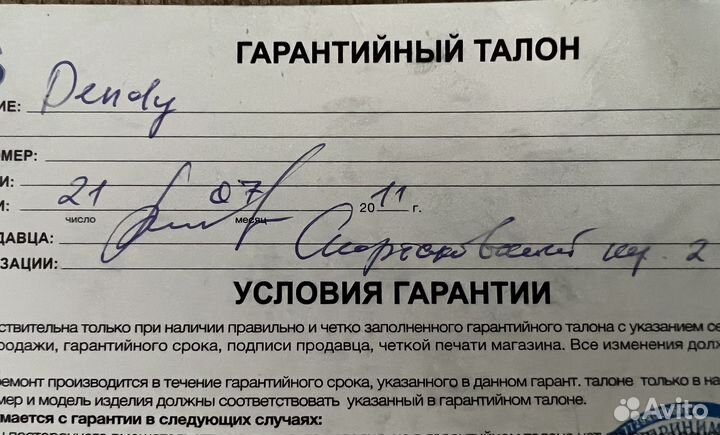 ГАРАНТИЙНЫЙ ТАЛОН
ИЕ: Dendy
ОМЕР:
И:
И: 21 07 2011 г.
число месяц
ДАВЦА:
ЗАЦИИ: Спартаковский 2
УСЛОВИЯ ГАРАНТИИ
ствительна только при наличии правильно и четко заполненного гарантийного талона с указанием се
родажи, гарантийного срока, подписи продавца, четкой печати магазина. Все изменения долж
ремонт производится в течение гарантийного срока, указанного в данном гарант. талоне только в на
мер и модель изделия должны соответствовать указанный в гарантийном талоне.
имается с гарантии в следующих случаях:
Avito